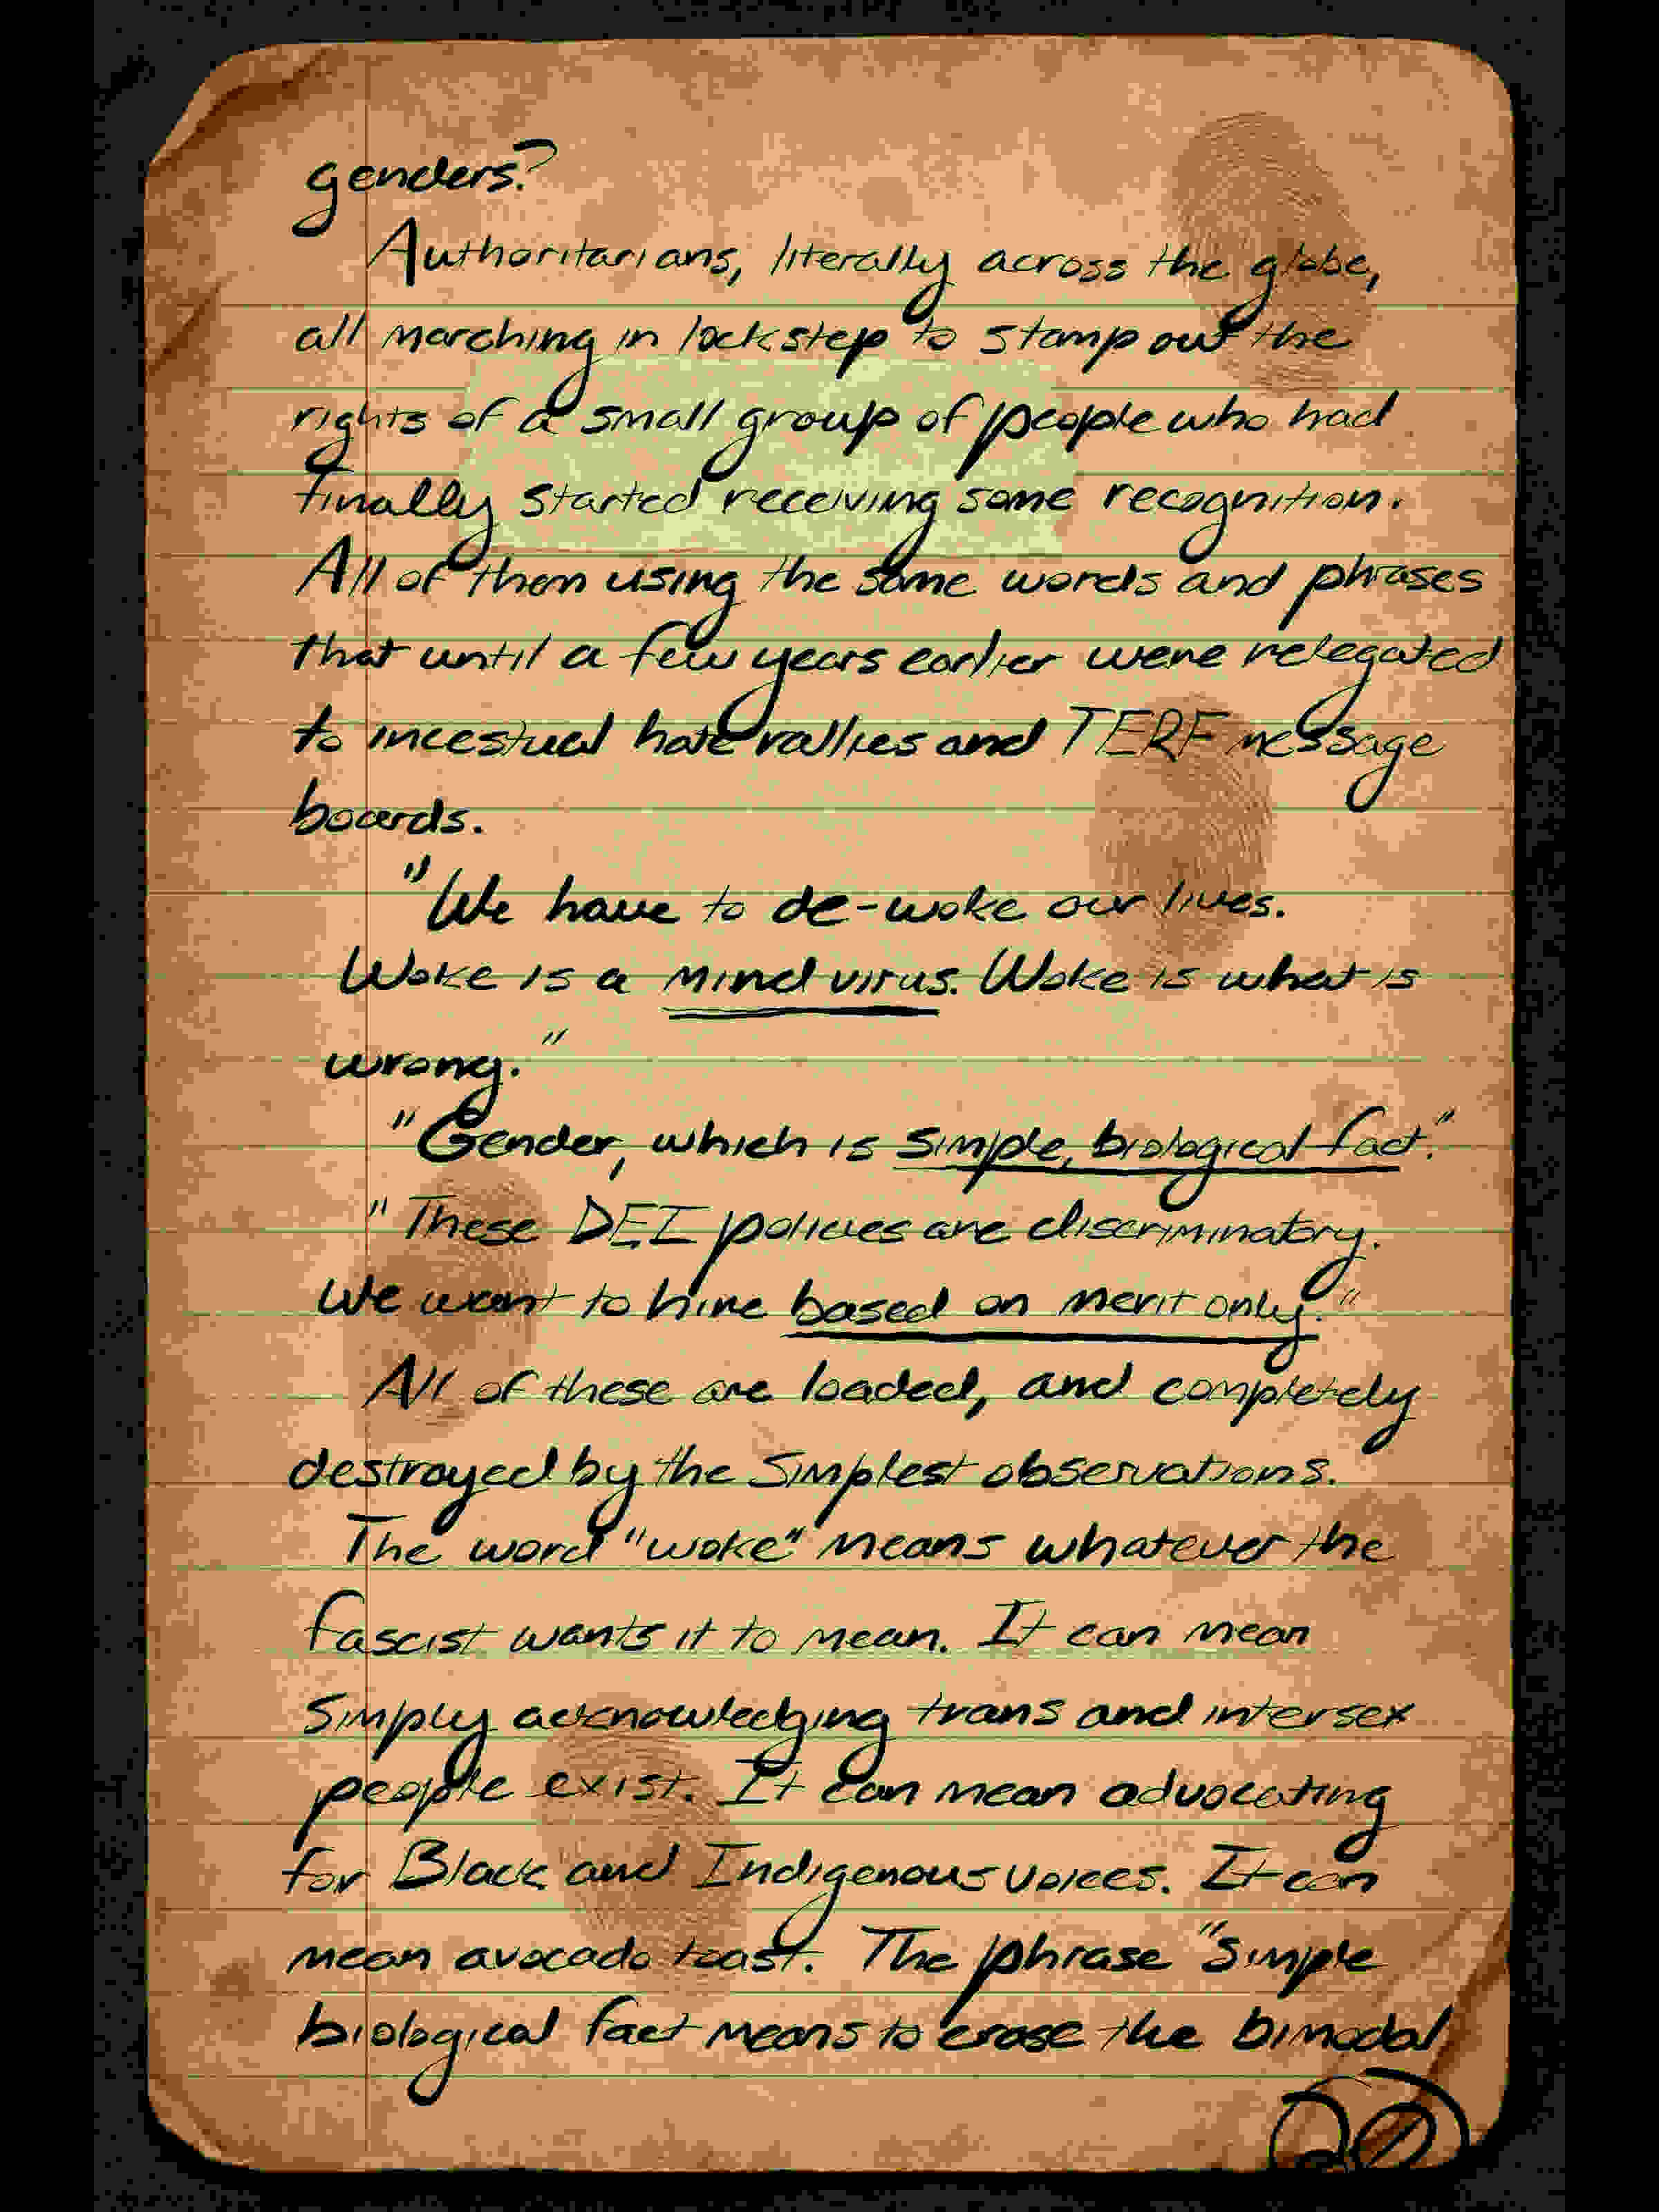 genders?
Authoritarians, literally across the globe,
all marching in lockstep to stamp out the
rights of a small group of people who had
finally started receiving some recognition.
All of them using the same words and phrases
that until a few years earlier were relegated
to incestual hate rallies and TERF message
boards.
"We have to de-woke our lives.
Woke is a mind virus. Woke is what is
wrong."
"Gender, which is simple, biological fact."
"These DEI policies are discriminatory.
We want to hire based on merit only."
All of these are loaded, and completely
destroyed by the simplest observations.
The word "woke" means whatever the
fascist wants it to mean. It can mean
simply acknowledging trans and intersex
people exist. It can mean advocating
for Black and Indigenous voices. It can
mean avocado toast. The phrase "simple
biological fact means to erase the bimodal